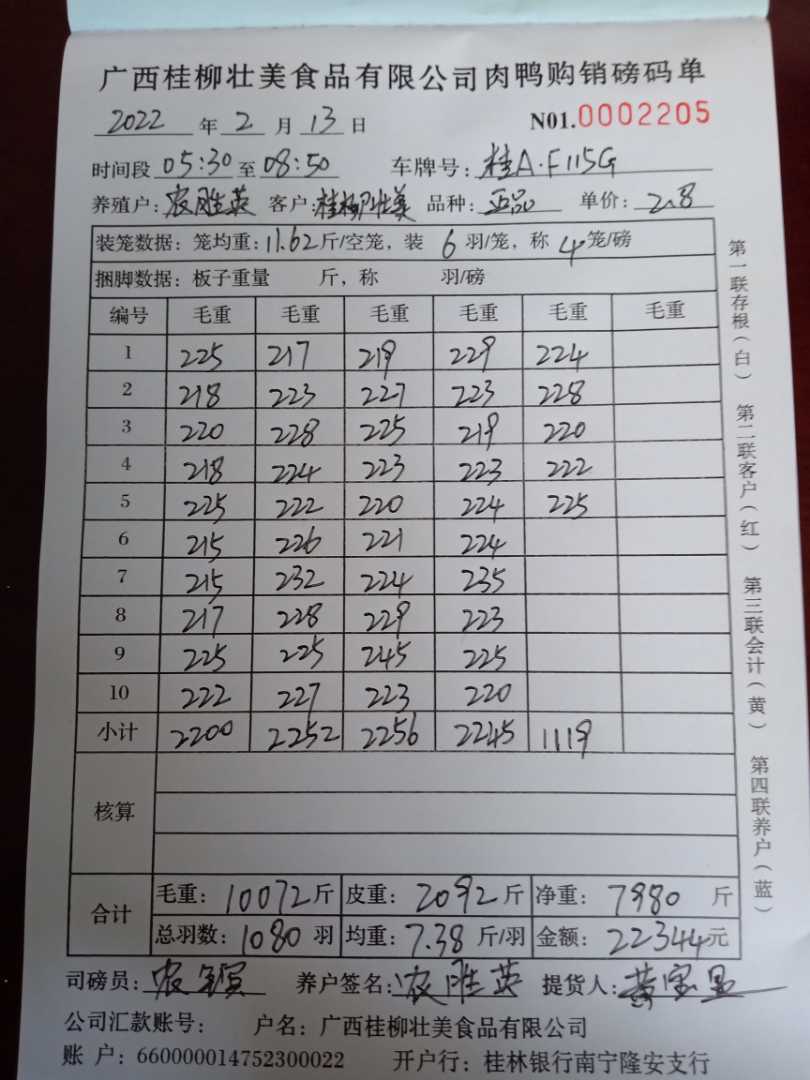 广西桂柳壮美食品有限公司肉鸭购销磅码单
2022 年 2 月 13 日 N01.0002205
时间段 05:30 至 08:50 车牌号: 桂A·F115G
养殖户: 农胜英 客户: 桂柳壮美 品种: 正品 单价: 2.8
装笼数据: 笼均重: 11.62 斤/空笼, 装 6 羽/笼, 称 4 笼/磅
捆脚数据: 板子重量 斤, 称 羽/磅
编号 毛重 毛重 毛重 毛重 毛重 毛重
1 225 217 219 229 224
2 218 223 227 223 228
3 220 228 225 219 220
4 218 224 223 223 222
5 225 222 220 224 225
6 215 226 221 224
7 215 232 224 235
8 217 228 229 223
9 225 225 245 225
10 222 227 223 220
小计 2200 2252 2256 2245 1119
核算
合计 毛重: 10072 斤 皮重: 2092 斤 净重: 7980 斤
总羽数: 1080 羽 均重: 7.38 斤/羽 金额: 22344 元
司磅员: 农 养户签名: 农胜英 提货人: 黄宝
公司汇款账号: 户名: 广西桂柳壮美食品有限公司
账 户: 660000014752300022 开户行: 桂林银行南宁隆安支行
第一联存根(白) 第二联客户(红) 第三联会计(黄) 第四联养户(蓝)